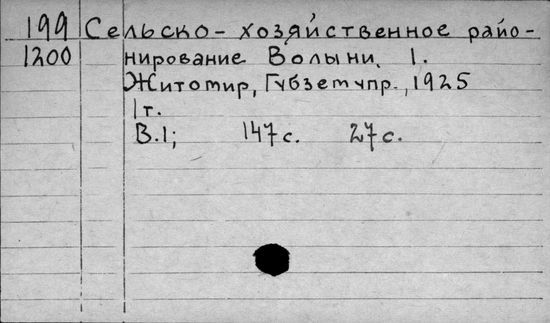 199 Сельско-хозяйственное райо-
1200 нирование Волыни. 1.
Житомир, Губземупр., 1925
1т.
В.1; 147с. 27с.